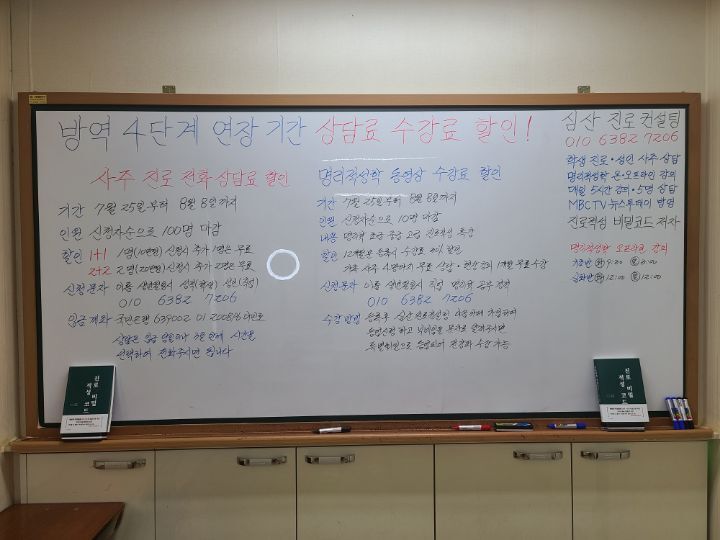 방역 4단계 연장 기간 상담료 수강료 할인!
사주 진로 전화 상담료 할인
기간 7월 25일부터 8월 8일까지
인원 신청자순으로 100명 마감
할인 1+1 1명(10만원) 신청시 추가 1명은 무료
2+2 2명(20만원)신청시 추가 2명은 무료
신청문자 이름 생년월일시 성별(학생) 성인(직업)
010 6382 7206
입금 계좌 국민은행 639002 01 200816
상담은 입금
선택하여 전화주시면 됩니다
명리적성학 동영상 수강료 할인
기간 7월 25일부터 8월 8일까지
인원 신청자순으로 10명 마감
내용 명리학 초급 중급 고급 진로적성 특강
할인 12개월 등록시 수강료 할인
가족 사주 4명까지 무료 상담 · 현장강의 1개월 무료수강
신청문자 이름 생년월일시 직업 명리학 공부 경력
010 6382 7206
수강 방법 등록후 심산진로컨설팅
특별회원으로 등업되어 수강 가능
심산 진로 컨설팅
010 6382 7206
학생 진로 · 성인 사주 상담
명리적성학 온·오프라인 강의
매일 5시간 강의 · 5명 상담
MBC TV 뉴스투데이 방영
진로적성 비밀코드 저자
명리적성학 오프라인 강의
9:30 6:00
12:00 12:00
진로 비밀
적성 코드
진로 비밀
적성 코드